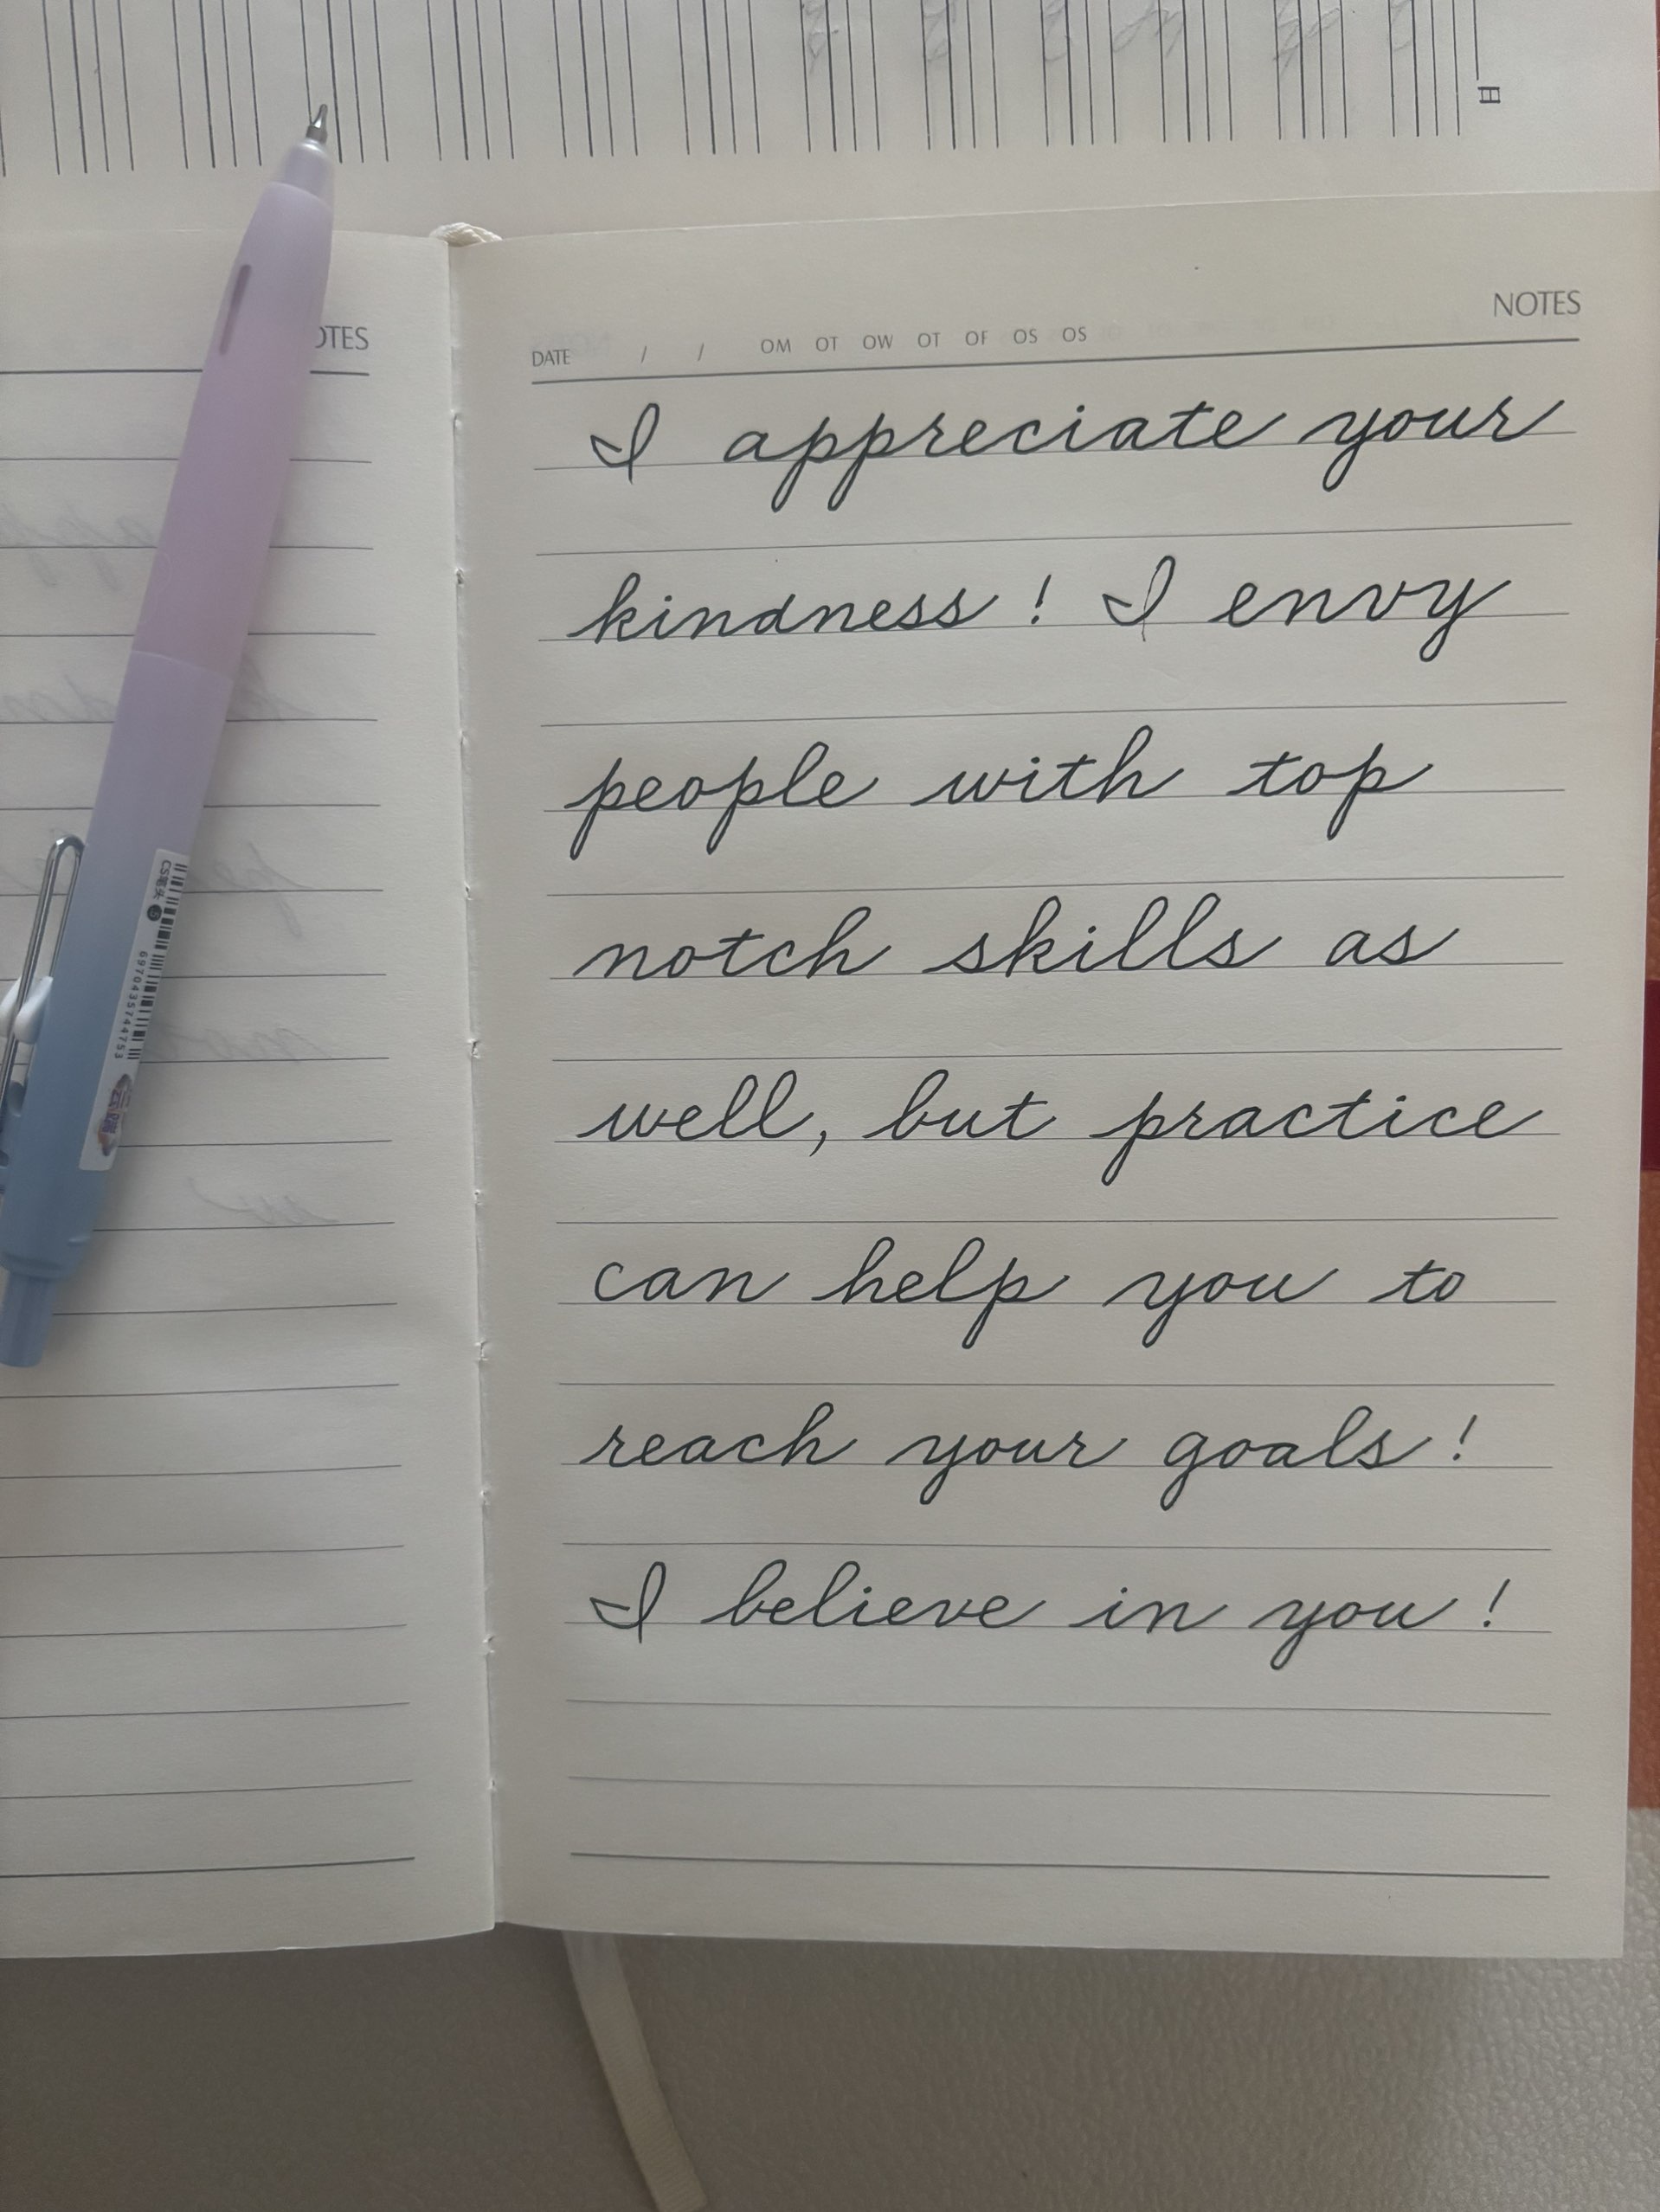 NOTES
DATE / / OM OT OW OT OF OS OS
I appreciate your
kindness! I envy
people with top
notch skills as
well, but practice
can help you to
reach your goals!
I believe in you!
OTES
CS笔头
6970435744753
日